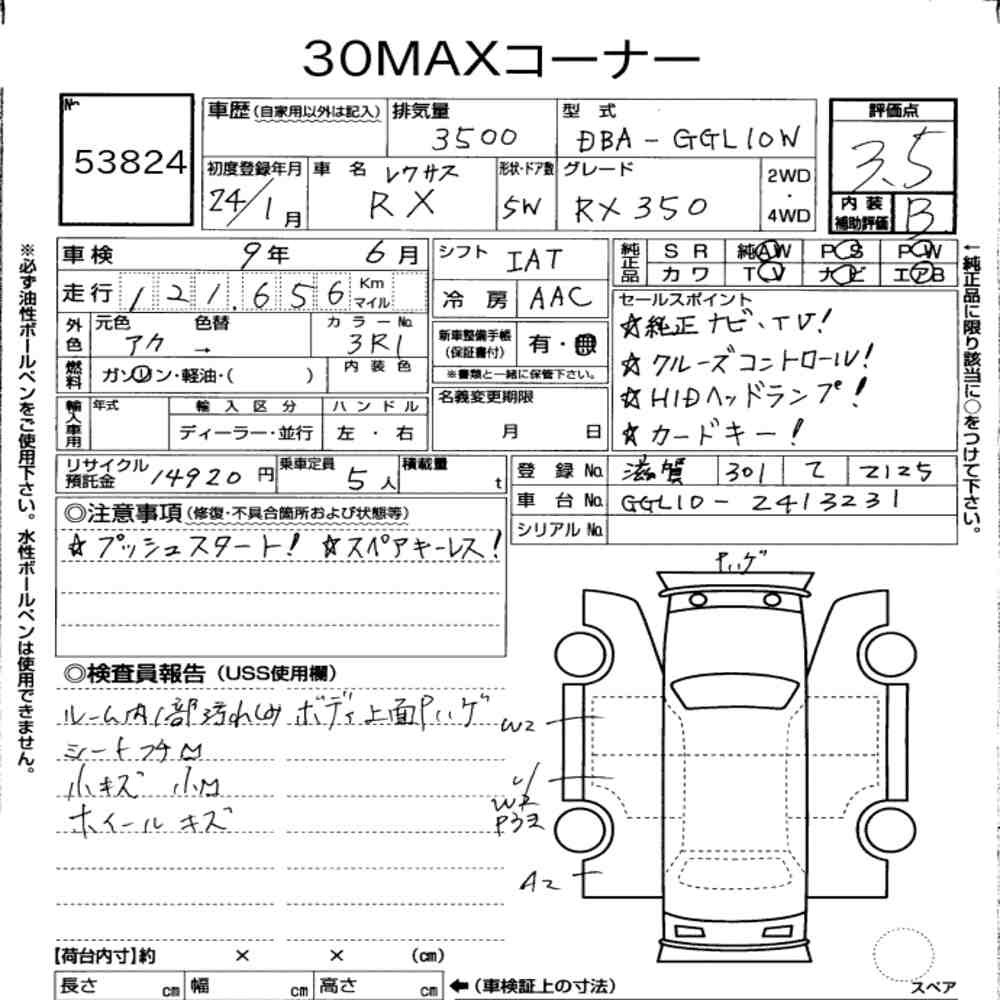 30MAXコーナー
No. 53824
車歴(自家用以外は記入) 排気量 3500 型式 DBA-GGL10W 評価点 3.5
初度登録年月 24/1月 車名 レクサス RX 形状・ドア数 5W グレード RX350 2WD・4WD 内装補助評価 B
車検 9年 6月
走行 121.656 Km マイル
外色 元色 色替 アカ → カラーNo. 3R1
燃料 ガソリン・軽油・( ) 内装色
輸入車用 年式 輸入区分 ディーラー・並行 ハンドル 左・右
シフト IAT
冷房 AAC
新車整備手帳(保証書付) 有・無
※書類と一緒に保管下さい。
名義変更期限 月 日
純正品 SR 純AW PS PW
カワ TV ナビ エアB
セールスポイント
☆純正ナビ、TV!
☆クルーズコントロール!
☆HIDヘッドランプ!
☆カードキー!
リサイクル預託金 14920円 乗車定員 5人 積載量 t
登録No. 滋賀 301 2125
車台No. GGL10-2413231
シリアルNo.
◎注意事項(修復・不具合箇所および状態等)
☆プッシュスタート! ☆スペアキーレス!
◎検査員報告(USS使用欄)
ルーム内1部汚れ ボディ上面Pハゲ
シート
小キズ
ホイールキズ
Pハゲ
W2
W2
A2
スペア
【荷台内寸】約 × × (cm)
長さ cm 幅 cm 高さ cm ←(車検証上の寸法)
※必ず油性ボールペンをご使用下さい。水性ボールペンは使用できません。
←純正品に限り該当に○をつけて下さい。